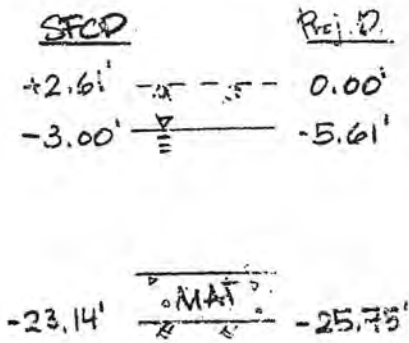 SFCD Proj. D.
+2.61' 0.00'
-3.00' -5.61'
MAT
-23.14' -25.75'